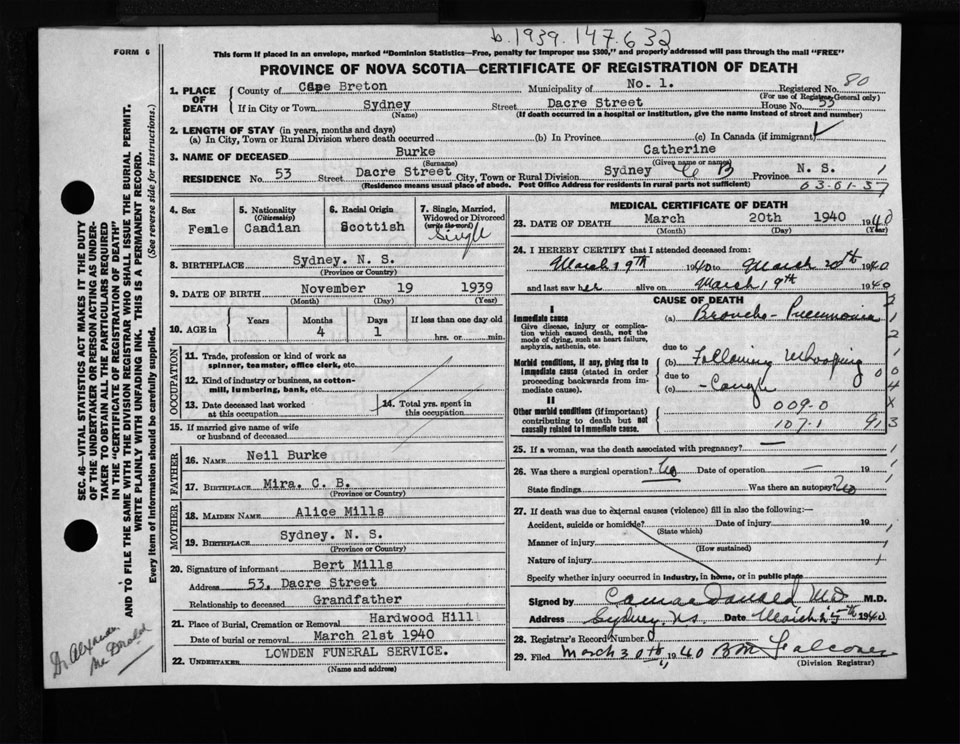 b. 1939. 147. 632
FORM 6
This form if placed in an envelope, marked "Dominion Statistics—Free, penalty for improper use $300," and properly addressed will pass through the mail "FREE"
PROVINCE OF NOVA SCOTIA—CERTIFICATE OF REGISTRATION OF DEATH
1. PLACE OF DEATH County of Cape Breton Municipality of No. 1. Registered No. 80
(For use of Registrar General only)
If in City or Town Sydney Street Dacre Street House No. 53
(Name) (If death occurred in a hospital or institution, give the name instead of street and number)
2. LENGTH OF STAY (in years, months and days)
(a) In City, Town or Rural Division where death occurred (b) In Province (c) In Canada (if immigrant)
3. NAME OF DECEASED Burke Catherine
(Surname) (Given name or names)
RESIDENCE No. 53 Street Dacre Street City, Town or Rural Division Sydney C B Province N. S. 1
(Residence means usual place of abode. Post Office Address for residents in rural parts not sufficient) 03-01-37
4. Sex Femle
5. Nationality (Citizenship) Candian
6. Racial Origin Scottish
7. Single, Married, Widowed or Divorced (write the word) Single
8. BIRTHPLACE Sydney. N. S.
(Province or Country)
9. DATE OF BIRTH November 19 1939
(Month) (Day) (Year)
10. AGE in Years Months 4 Days 1 If less than one day old hrs. or min.
OCCUPATION
11. Trade, profession or kind of work as spinner, teamster, office clerk, etc.
12. Kind of industry or business, as cotton-mill, lumbering, bank, etc.
13. Date deceased last worked at this occupation
14. Total yrs. spent in this occupation
15. If married give name of wife or husband of deceased
FATHER
16. NAME Neil Burke
17. BIRTHPLACE Mira. C. B.
(Province or Country)
MOTHER
18. MAIDEN NAME Alice Mills
19. BIRTHPLACE Sydney. N. S.
(Province or Country)
20. Signature of informant Bert Mills
Address 53. Dacre Street
Relationship to deceased Grandfather
21. Place of Burial, Cremation or Removal Hardwood Hill
Date of burial or removal March 21st 1940
22. UNDERTAKER LOWDEN FUNERAL SERVICE.
(Name and address)
MEDICAL CERTIFICATE OF DEATH
23. DATE OF DEATH March 20th 1940 1940
(Month) (Day) (Year)
24. I HEREBY CERTIFY that I attended deceased from:
March 19th 1940 to March 20th 1940
and last saw her alive on March 19th 1940
CAUSE OF DEATH
I
Immediate cause (a) Broncho-Pneumonia
Give disease, injury or complication which caused death, not the mode of dying, such as heart failure, asphyxia, asthenia, etc.
due to
Morbid conditions, if any, giving rise to immediate cause (stated in order proceeding backwards from immediate cause). (b) Following Whooping
due to
(c) -Cough
II
Other morbid conditions (if important) contributing to death but not causally related to immediate cause.
009-0
107-1 913
25. If a woman, was the death associated with pregnancy?
26. Was there a surgical operation? No Date of operation 19
State findings Was there an autopsy? No
27. If death was due to external causes (violence) fill in also the following:—
Accident, suicide or homicide? Date of injury 19
(State which)
Manner of injury
(How sustained)
Nature of injury
Specify whether injury occurred in industry, in home, or in public place
Signed by MD M.D.
Address Sydney, N.S. Date March 25th 1940
28. Registrar's Record Number
29. Filed March 30th, 1940 BM Falconer
(Division Registrar)
SEC. 46—VITAL STATISTICS ACT MAKES IT THE DUTY
OF THE UNDERTAKER OR PERSON ACTING AS UNDER-
TAKER TO OBTAIN ALL THE PARTICULARS REQUIRED
IN THE "CERTIFICATE OF REGISTRATION OF DEATH"
AND TO FILE THE SAME WITH THE DIVISION REGISTRAR WHO SHALL ISSUE THE BURIAL PERMIT.
WRITE PLAINLY WITH UNFADING INK. THIS IS A PERMANENT RECORD.
Every item of Information should be carefully supplied. (See reverse side for instructions.)
Dr Alexander
McDonald